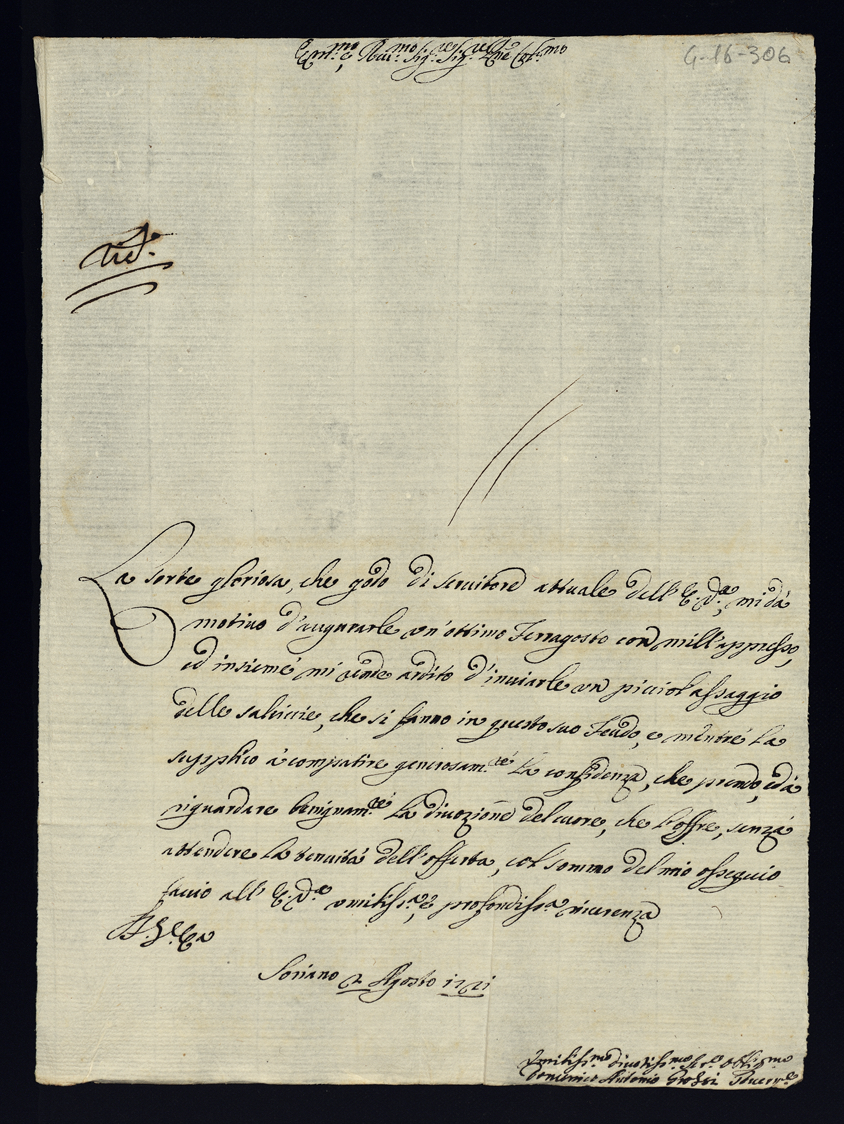 Em.mo e Rev.mo Sig.r Sig.r P.rone Col.mo
G-16-306
La sorte gloriosa, che godo di servitore attuale dell'E.V.ra, mi dà
motivo d'augurarle un'ottimo Ferragosto con mill'appresso,
ed insieme mi rende ardito d'inviarle un picciol assaggio
delle salsiccie, che si fanno in questo suo Feudo, e mentre La
supplico à compatire generosam.te La confidenza, che prendo, ed à
riguardare benignam.te La divozione del cuore, che L'offre, senza
attendere La tenuità dell'offerta, col sommo del mio ossequio
faccio all'E.V.ra umiliss.a, e profondiss.a riverenza
Soriano 2 Agosto 1721
Umiliss.mo Divotiss.mo Ser.e Obblig.mo
Domenico Antonio Grossi